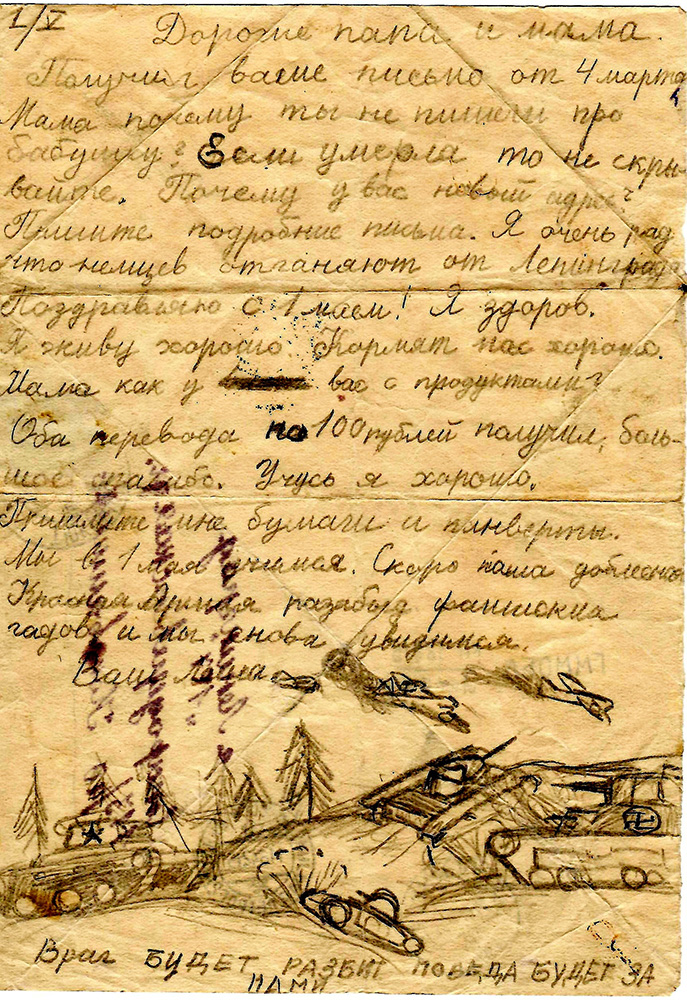 1/V
Дорогие папа и мама.
Получил ваше письмо от 4 марта
Мама почему ты не пишеш про
бабушку? Если умерла то не скры-
вайте. Почему у вас новый адрес?
Пишите подробние письма. Я очень рад
что немцев отганяют от Ленинграда
Поздравляю с 1 маем! Я здоров.
Я живу хорошо. Кормят нас хорошо.
Мама как у вас с продуктами?
Оба перевода по 100 рублей получил, боль-
шое спасибо. Учусь я хорошо.
Пришлите мне бумаги и конверты.
Мы в 1 мая учимся. Скоро наша доблесная
Красная Армия разабьёт фашиских
гадов и мы снова увидимся.
Ваш
Враг БУДЕТ РАЗБИТ ПОБЕДА БУДЕТ ЗА
НАМИ